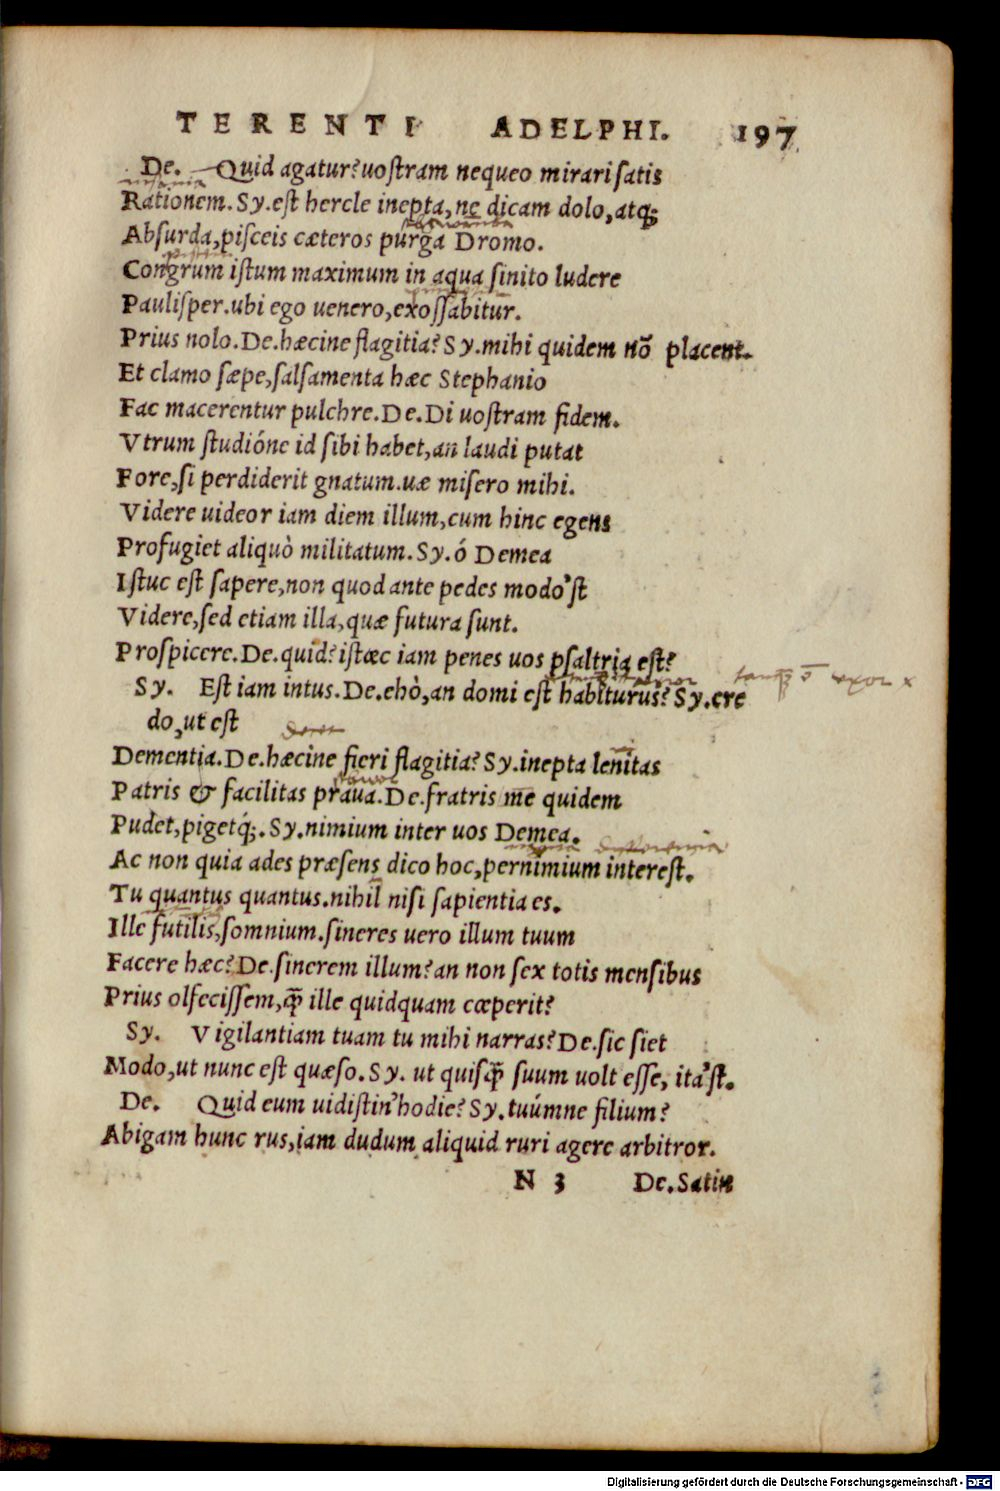 TERENTI ADELPHI. 197
De. Quid agatur? uoſtram nequeo mirari ſatis
Rationem. Sy. eſt hercle inepta, ne dicam dolo, atq;
Abſurda, piſceis cæteros purga Dromo.
Congrum iſtum maximum in aqua ſinito ludere
Pauliſper. ubi ego uenero, exoſſabitur.
Prius nolo. De. hæcine flagitia? Sy. mihi quidem nō placent.
Et clamo ſæpe, ſalſamenta hæc Stephanio
Fac macerentur pulchre. De. Di uoſtram fidem.
Vtrum ſtudióne id ſibi habet, an laudi putat
Fore, ſi perdiderit gnatum. uæ miſero mihi.
Videre uideor iam diem illum, cum hinc egens
Profugiet aliquò militatum. Sy. ó Demea
Iſtuc eſt ſapere, non quod ante pedes modo'ſt
Videre, ſed etiam illa, quæ futura ſunt.
Proſpicere. De. quid? iſtæc iam penes uos pſaltria eſt?
Sy. Eſt iam intus. De. ehò, an domi eſt habiturus? Sy. cre
do, ut eſt
Dementia. De. hæcine fieri flagitia? Sy. inepta lenitas
Patris & facilitas praua. De. fratris me quidem
Pudet, pigetq́;. Sy. nimium inter uos Demea.
Ac non quia ades præſens dico hoc, pernimium intereſt.
Tu quantus quantus. nihil niſi ſapientia es.
Ille futilis, ſomnium. ſineres uero illum tuum
Facere hæc? De. ſinerem illum? an non ſex totis menſibus
Prius olfeciſſem, q̄ ille quidquam cœperit?
Sy. Vigilantiam tuam tu mihi narras? De. ſic ſiet
Modo, ut nunc eſt quæſo. Sy. ut quiſq̄ ſuum uolt eſſe, ita'ſt.
De. Quid eum uidiſtin' hodie? Sy. tuúmne filium?
Abigam hunc rus, iam dudum aliquid ruri agere arbitror.
N 3 De. Satin
Digitalisierung gefördert durch die Deutsche Forschungsgemeinschaft - DFG